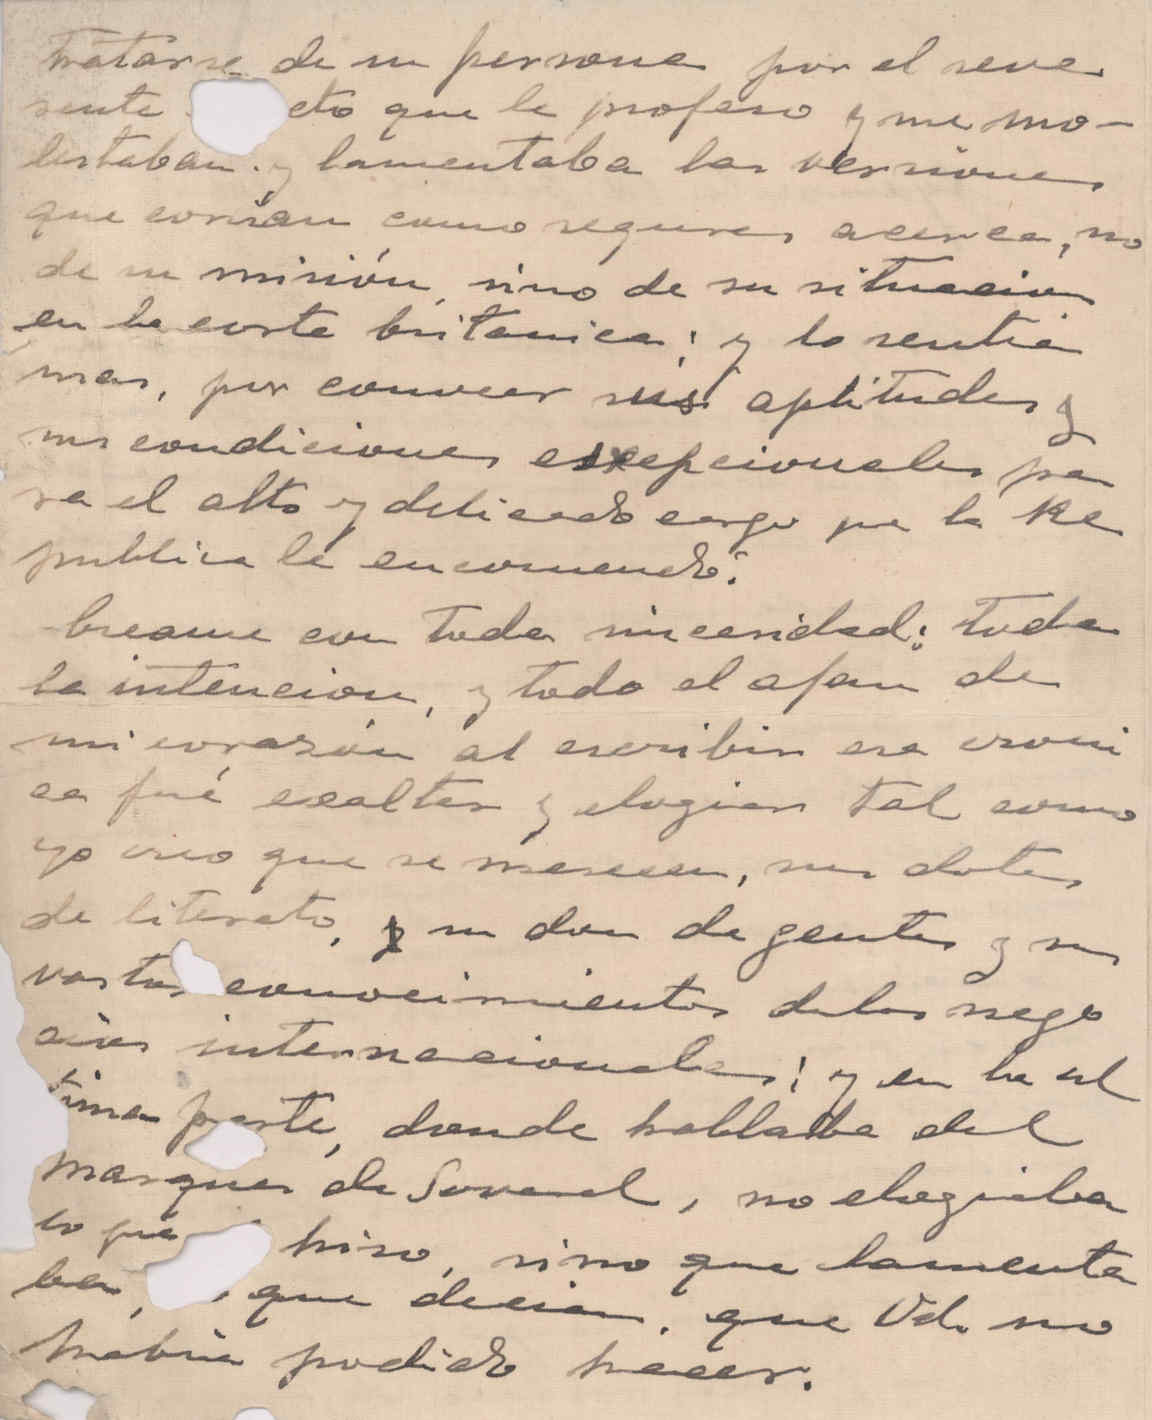 tratarse de su persona por el reve
rente cto que le profeso y me mo-
lestaban y lamentaba las versiones
que corrian como seguras acerca, no
de su misión, sino de su situacion
en la corte britanica; y lo sentia
mas, por conocer sus aptitudes y
sus condiciones excepcionales pa
ra el alto y delicado cargo que la Re
publica le encomendó.
Creame con toda sinceridad; toda
la intencion, y todo el afan de
mi corazón al escribir esa croni
ca fué exaltar y elogiar tal como
yo creo que se merecen, sus dotes
de literato, y su don de gentes y sus
vastos conocimientos de los nego
cios internacionales; y en la ul
tima parte, donde hablaba del
marques de Soveral, no elogiaba
lo que hizo, sino que lamenta
ba, que decian, que Vd. no
habria podido hacer.